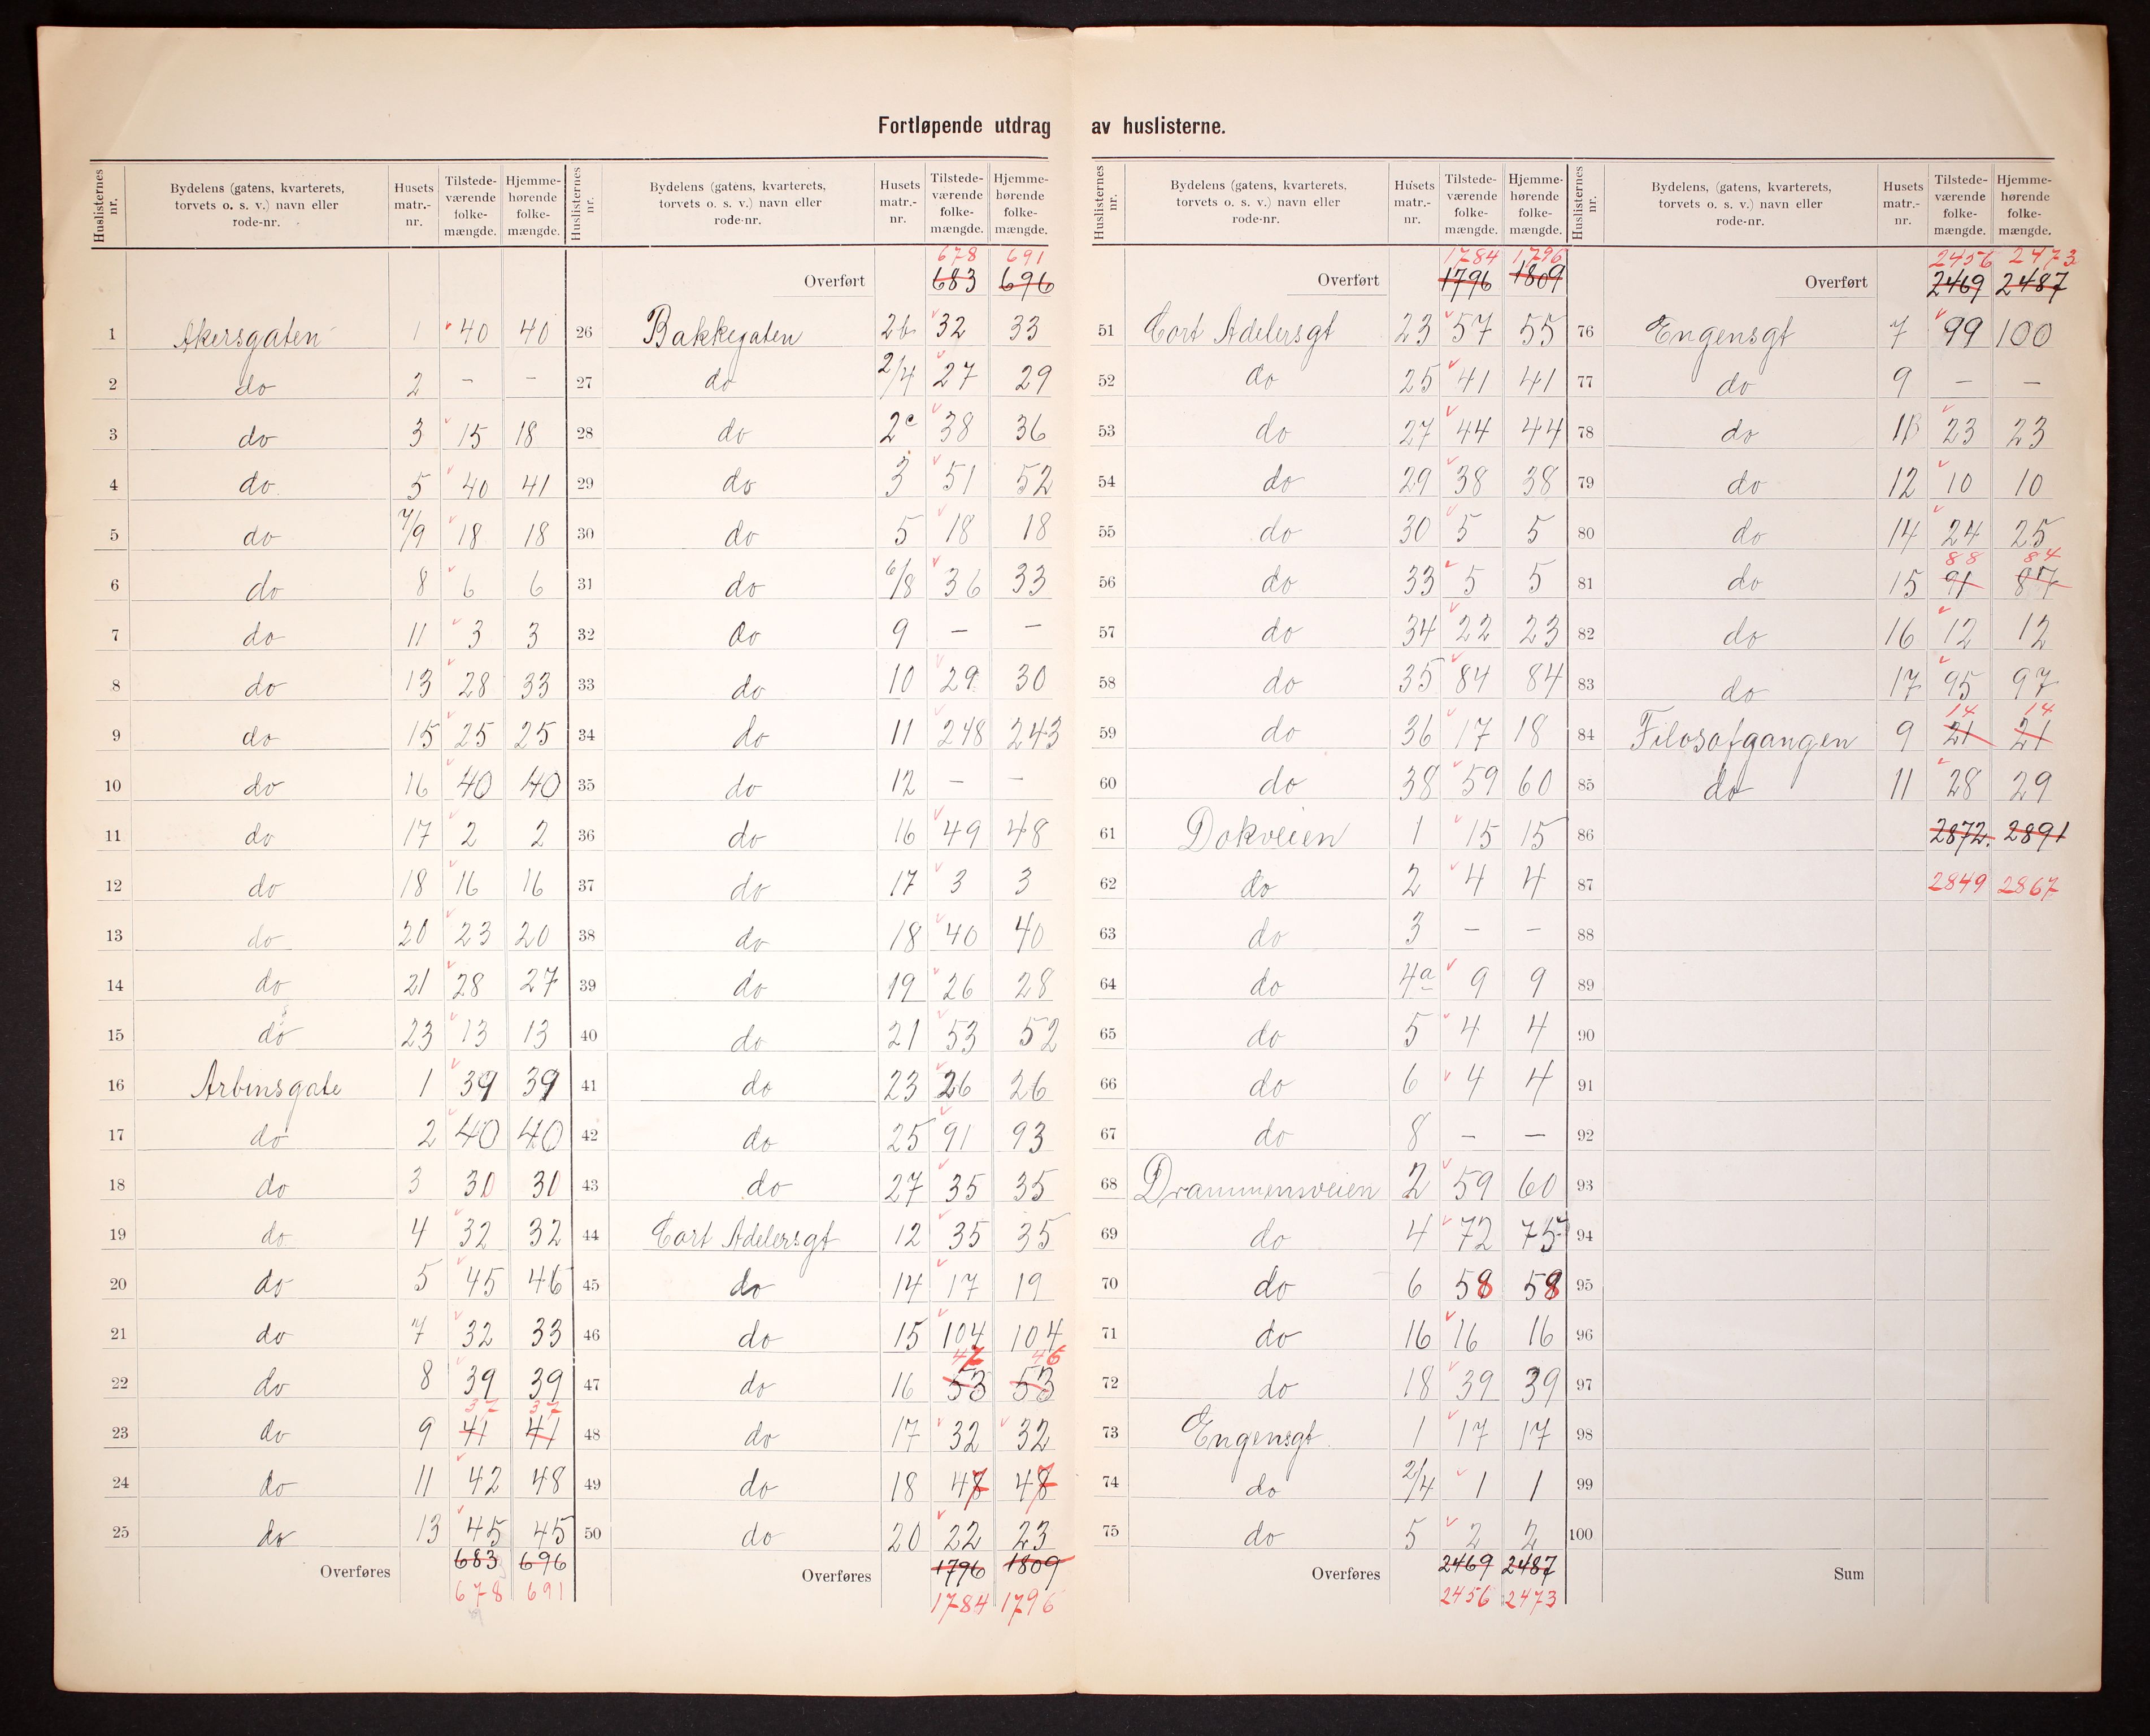 Fortløpende utdrag av huslisterne.
Huslisternes nr. Bydelens (gatens, kvarterets, torvets o. s. v.) navn eller rode-nr. Husets matr.-nr. Tilstede-værende folke-mængde. Hjemme-hørende folke-mængde.
1 Akersgaten 1 40 40
2 do 2 - -
3 do 3 15 18
4 do 5 40 41
5 do 7/9 18 18
6 do 8 6 6
7 do 11 3 3
8 do 13 28 33
9 do 15 25 25
10 do 16 40 40
11 do 17 2 2
12 do 18 16 16
13 do 20 23 20
14 do 21 28 27
15 do 23 13 13
16 Arbinsgate 1 39 39
17 do 2 40 40
18 do 3 30 30
19 do 4 32 32
20 do 5 45 46
21 do 7 32 33
22 do 8 39 39
37 37
23 do 9 41 41
24 do 11 42 48
25 do 13 45 45
Overføres 683 696
678 691
Huslisternes nr. Bydelens (gatens, kvarterets, torvets o. s. v.) navn eller rode-nr. Husets matr.-nr. Tilstede-værende folke-mængde. Hjemme-hørende folke-mængde.
678 691
Overført 683 696
26 Bakkegaten 2b 32 33
27 do 2/4 27 29
28 do 2c 38 36
29 do 3 51 52
30 do 5 18 18
31 do 6/8 36 33
32 do 9 - -
33 do 10 29 30
34 do 11 248 243
35 do 12 - -
36 do 16 49 48
37 do 17 3 3
38 do 18 40 40
39 do 19 26 28
40 do 21 53 52
41 do 23 26 26
42 do 25 91 93
43 do 27 35 35
44 Cort Adelersgt 12 35 35
45 do 14 17 19
46 do 15 104 104
47 46
47 do 16 53 53
48 do 17 32 32
49 do 18 47 47
50 do 20 22 23
Overføres 1796 1809
1784 1796
Huslisternes nr. Bydelens (gatens, kvarterets, torvets o. s. v.) navn eller rode-nr. Husets matr.-nr. Tilstede-værende folke-mængde. Hjemme-hørende folke-mængde.
1784 1796
Overført 1796 1809
51 Cort Adelersgt 23 57 55
52 do 25 41 41
53 do 27 44 44
54 do 29 38 38
55 do 30 5 5
56 do 33 5 5
57 do 34 22 23
58 do 35 84 84
59 do 36 17 18
60 do 38 59 60
61 Dokveien 1 15 15
62 do 2 4 4
63 do 3 - -
64 do 4a 9 9
65 do 5 4 4
66 do 6 4 4
67 do 8 - -
68 Drammensveien 2 59 60
69 do 4 72 75
70 do 6 58 58
71 do 16 16 16
72 do 18 39 39
73 Engensgt 1 17 17
74 do 2/4 1 1
75 do 5 2 2
Overføres 2469 2487
2456 2473
Huslisternes nr. Bydelens, (gatens, kvarterets, torvets o. s. v.) navn eller rode-nr. Husets matr.-nr. Tilstede-værende folke-mængde. Hjemme-hørende folke-mængde.
2456 2473
Overført 2469 2487
76 Engensgt 7 99 100
77 do 9 - -
78 do 23 23
79 do 12 10 10
80 do 14 24 25
88 84
81 do 15 91 87
82 do 16 12 12
83 do 17 95 97
14 14
84 Filosofgangen 9 21 21
85 do 11 28 29
86 2872. 2891
87 2849 2867
88
89
90
91
92
93
94
95
96
97
98
99
100
Sum